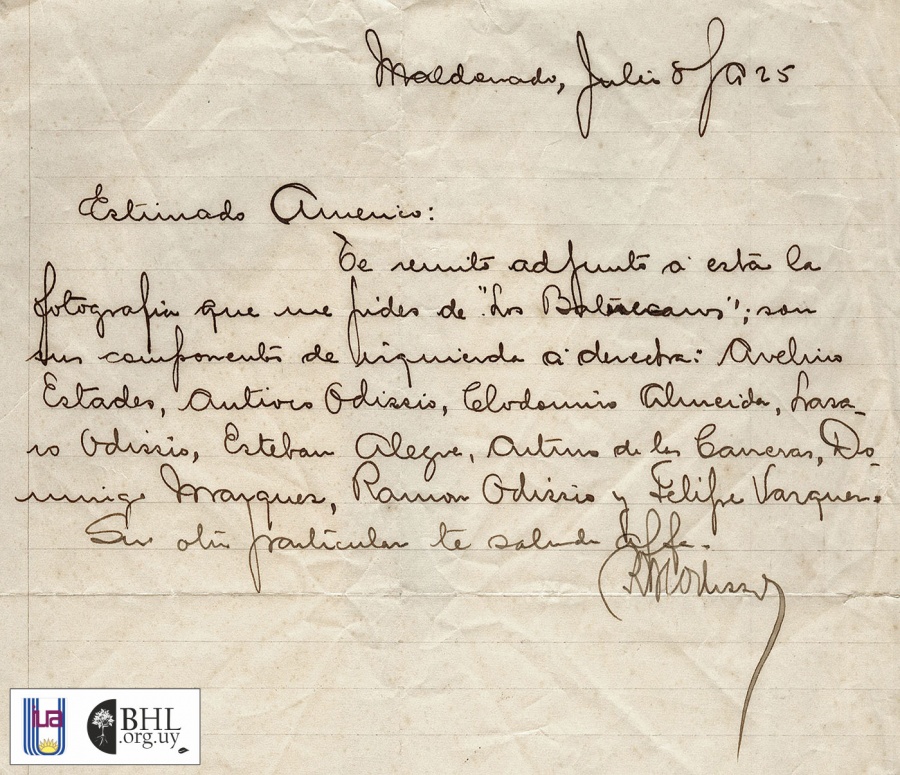 Maldonado, Julio 8/925
Estimado Americo:
Te remito adjunto a esta la
fotografia que me pides de "Los Balnecanos"; son
sus componentes de izquierda a derecha: Avelino
Estades, Antivio Odizzio, Clodomiro Almeida, Lasa-
ro Odizzio, Esteban Alegre, Arturo de los Carreras, Do-
mingo Marquez, Ramon Odizzio y Felipe Vazquez.
Sin otro particular te saluda affo.
Odizzio
ua
BHL
.org.uy